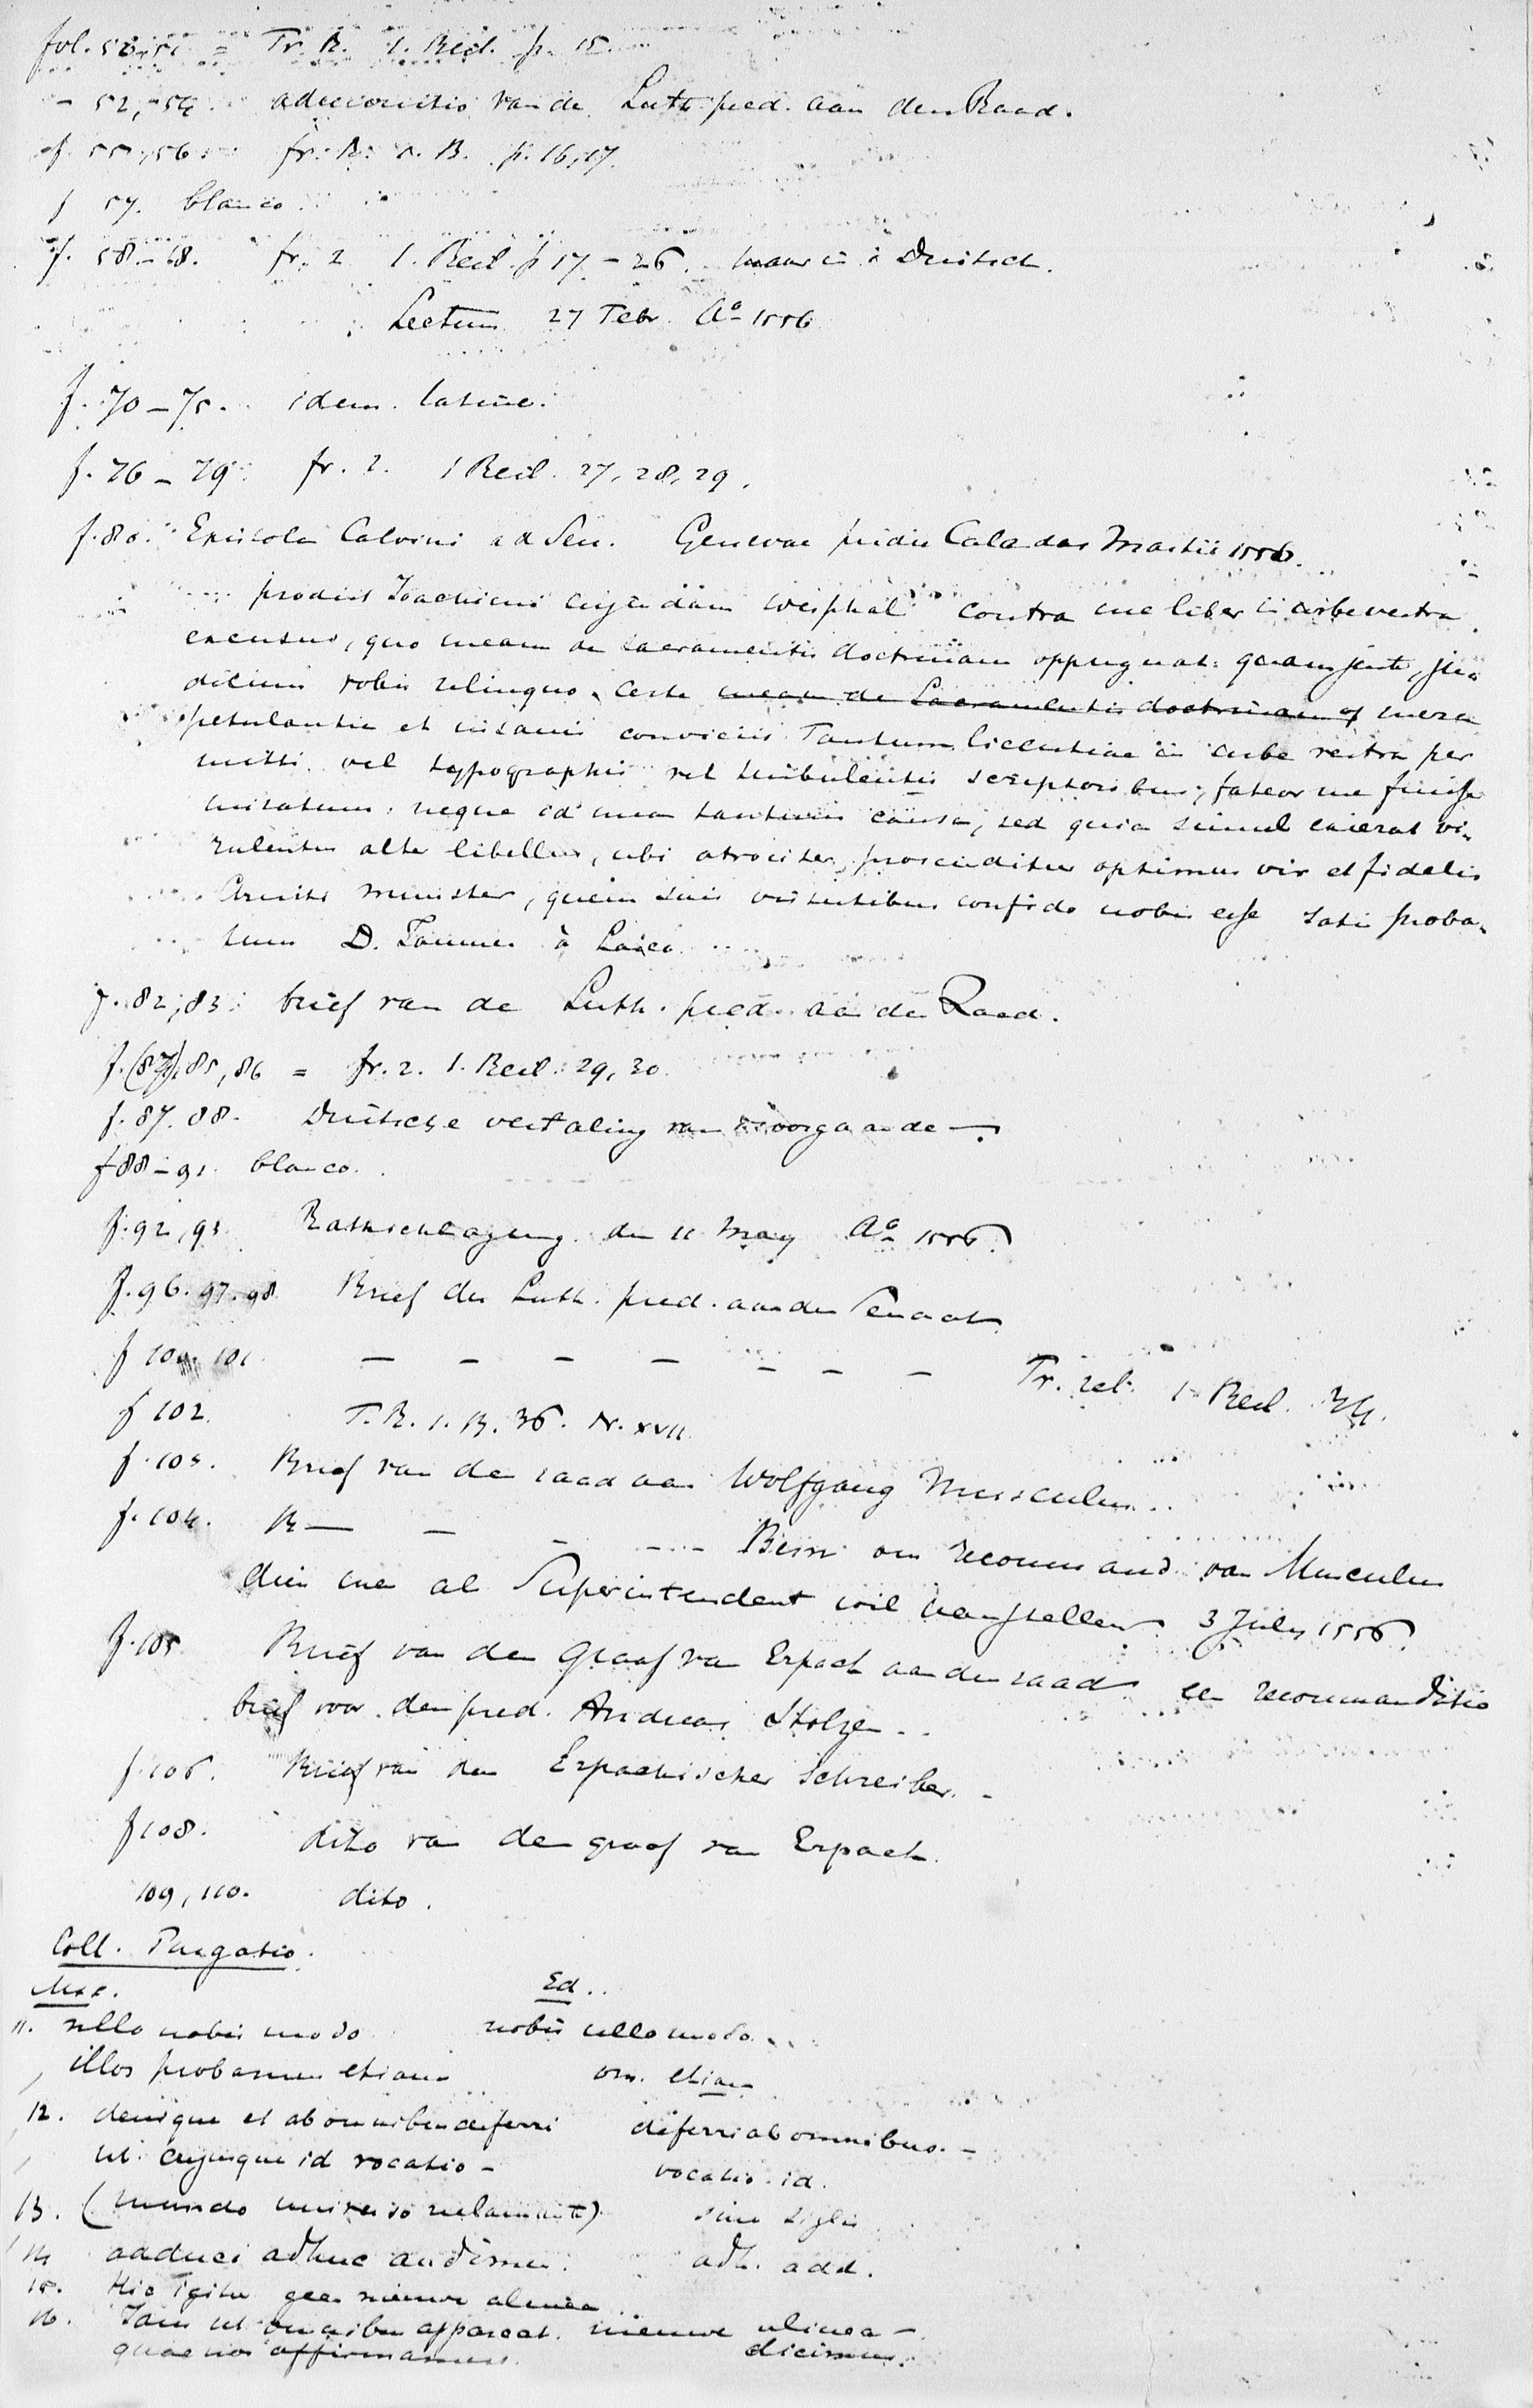 fol. 50, 51 = Fr. R. 1. Beil. p. 15.
- 52, 54. admonitio van de Luth. pred. aan den Raad.
f. 55, 56. fr. R. 1. B. p. 16, 17.
f 57. blanco.
f. 58-68. fr. 2 1. Beil. p 17 - 26. maar in 't Duitsch.
Lectum 27 Febr. Ao 1556
f. 70 - 75. idem. latine.
f. 76 - 79. fr. 2. 1 Beil. 27, 28, 29.
f. 80. Epistola Calvini ad Sen. Genevae pridie Calendas Martii 1556.
.... prodiit Joachimi cujusdam Westphali contra me liber in urbe vestra
excusus, quo meam de sacramentis doctrinam oppugnat: quam juste, ju-
dicium vobis relinquo. Certe meam de Sacramentis doctrinam op mera
petulantia et insanis conviciis Tantum licentiae in urbe vestra per
mitti vel typographis vel turbulentis scriptoribus, fateor me fuisse
miratum: neque id mea tantum causa, sed quia simul exierat vi-
rulentus alter libellus, ubi atrociter proscinditur optimus vir et fidelis
Christi minister, quem suis virtutibus confido vobis esse satis proba-
tum D. Joannes à Lasco ....
f. 82, 83. brief van de Luth. pred. aan den Raad.
f. (84), 85, 86 = fr. 2. 1. Beil. 29, 30.
f. 87. 88. Duitsche vertaling van voorgaande -
f 88 - 91. blanco.
f. 92, 93. Rathschlagung den 11 May Ao 1556.
f. 96. 97. 98. Brief der Luth. pred. aan den Senaat
f 100. 101. - - - - - - - Fr. rel. 1 Beil. 34.
f 102. F. R. 1. B. 36. N. XVII.
f. 103. Brief van den raad aan Wolfgang Musculus..
f. 104. B - - - - Bern om recommand. van Musculus
dien men als Superintendent wil aanstellen 3 July 1556.
f. 105 Brief van den Graaf van Erpach aan den raad een recommandatie
brief voor den pred. Andreas Stolze..
f. 106. Brief van den Erpachischer Schreiber. -
f 108. dito van den graaf van Erpach.
109, 110. dito.
Coll. Purgatio.
Msc. Ed..
11. ullo nobis modo nobis ullo modo.
, illos probamus etiam om. etiam
12. denique et ab omnibus deferri deferri ab omnibus. -
, ut cujusque id vocatio - vocatio id.
13. (mundo universo reclamante) sine siglis
14 adduci adhuc audimus. adh. add.
15. Hic Igitur geen nieuwe alinea
16. Jam ut omnibus appareat. nieuwe alinea -.
quae nos affirmamus. dicimus.